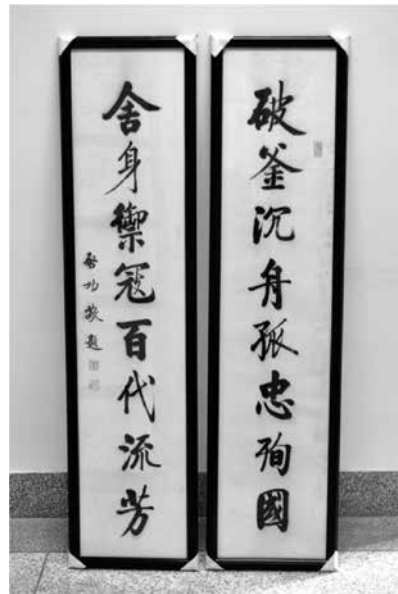 破釜沉舟孤忠殉國
舍身禦寇百代流芳
啓功敬題